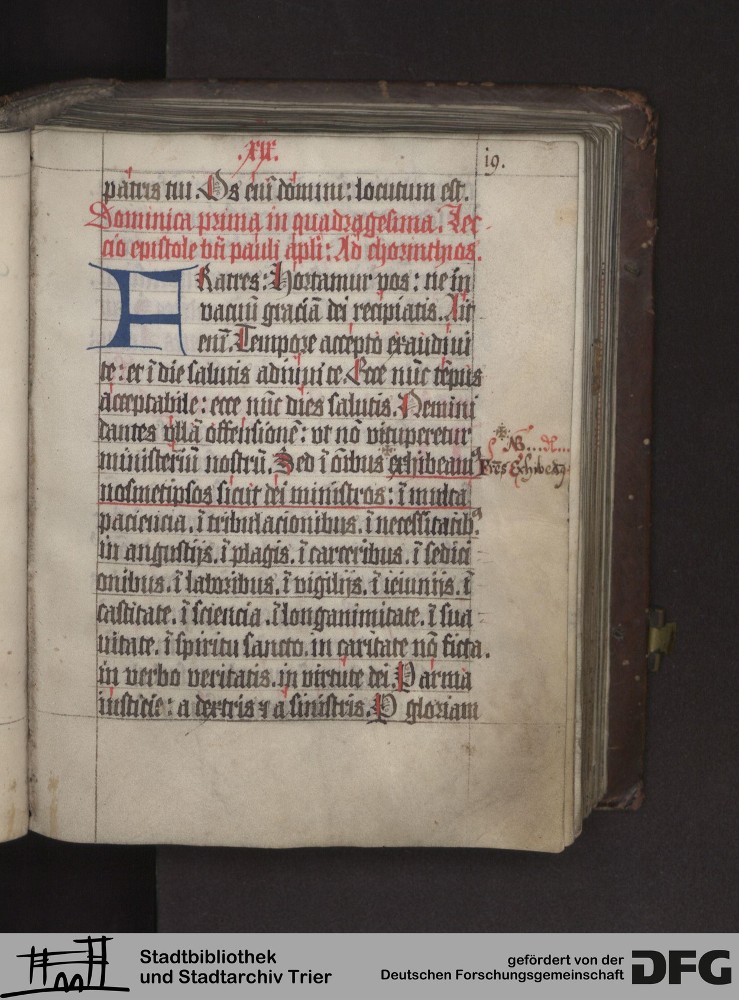 .xix.
19.
patris tui. Os eni domini: locutum est.
Dominica prima in quadragesima. Lec-
cio epistole bti pauli apli: Ad chorinthios.
FRatres: Hortamur vos: ne in
vacuū graciā dei recipiatis. Ait
enī. Tempore accepto exaudiui
te: et ī die salutis adiuui te. Ecce nūc tēpus
acceptabile: ecce nūc dies salutis. Nemini
dantes vllā offensionē: vt nō vituperetur
ministeriū nostrū. Sed ī oībus exhibeamꝰ
nosmetipsos sicut dei ministros: ī multa
paciencia. ī tribulacionibus. ī necessitatibꝰ.
in angustijs. ī plagis. ī carceribus. ī sedici
onibus. ī laboribus. ī vigilijs. ī ieiunijs. ī
castitate. ī sciencia. ī longanimitate. ī sua
uitate. ī spiritu sancto. in caritate nō ficta.
in verbo veritatis. in virtute dei. P arma
iusticie: a dextris ⁊ a sinistris. P gloriam
NB...
Frēs Exhibeaꝰ
Stadtbibliothek
und Stadtarchiv Trier
gefördert von der
Deutschen Forschungsgemeinschaft
DFG